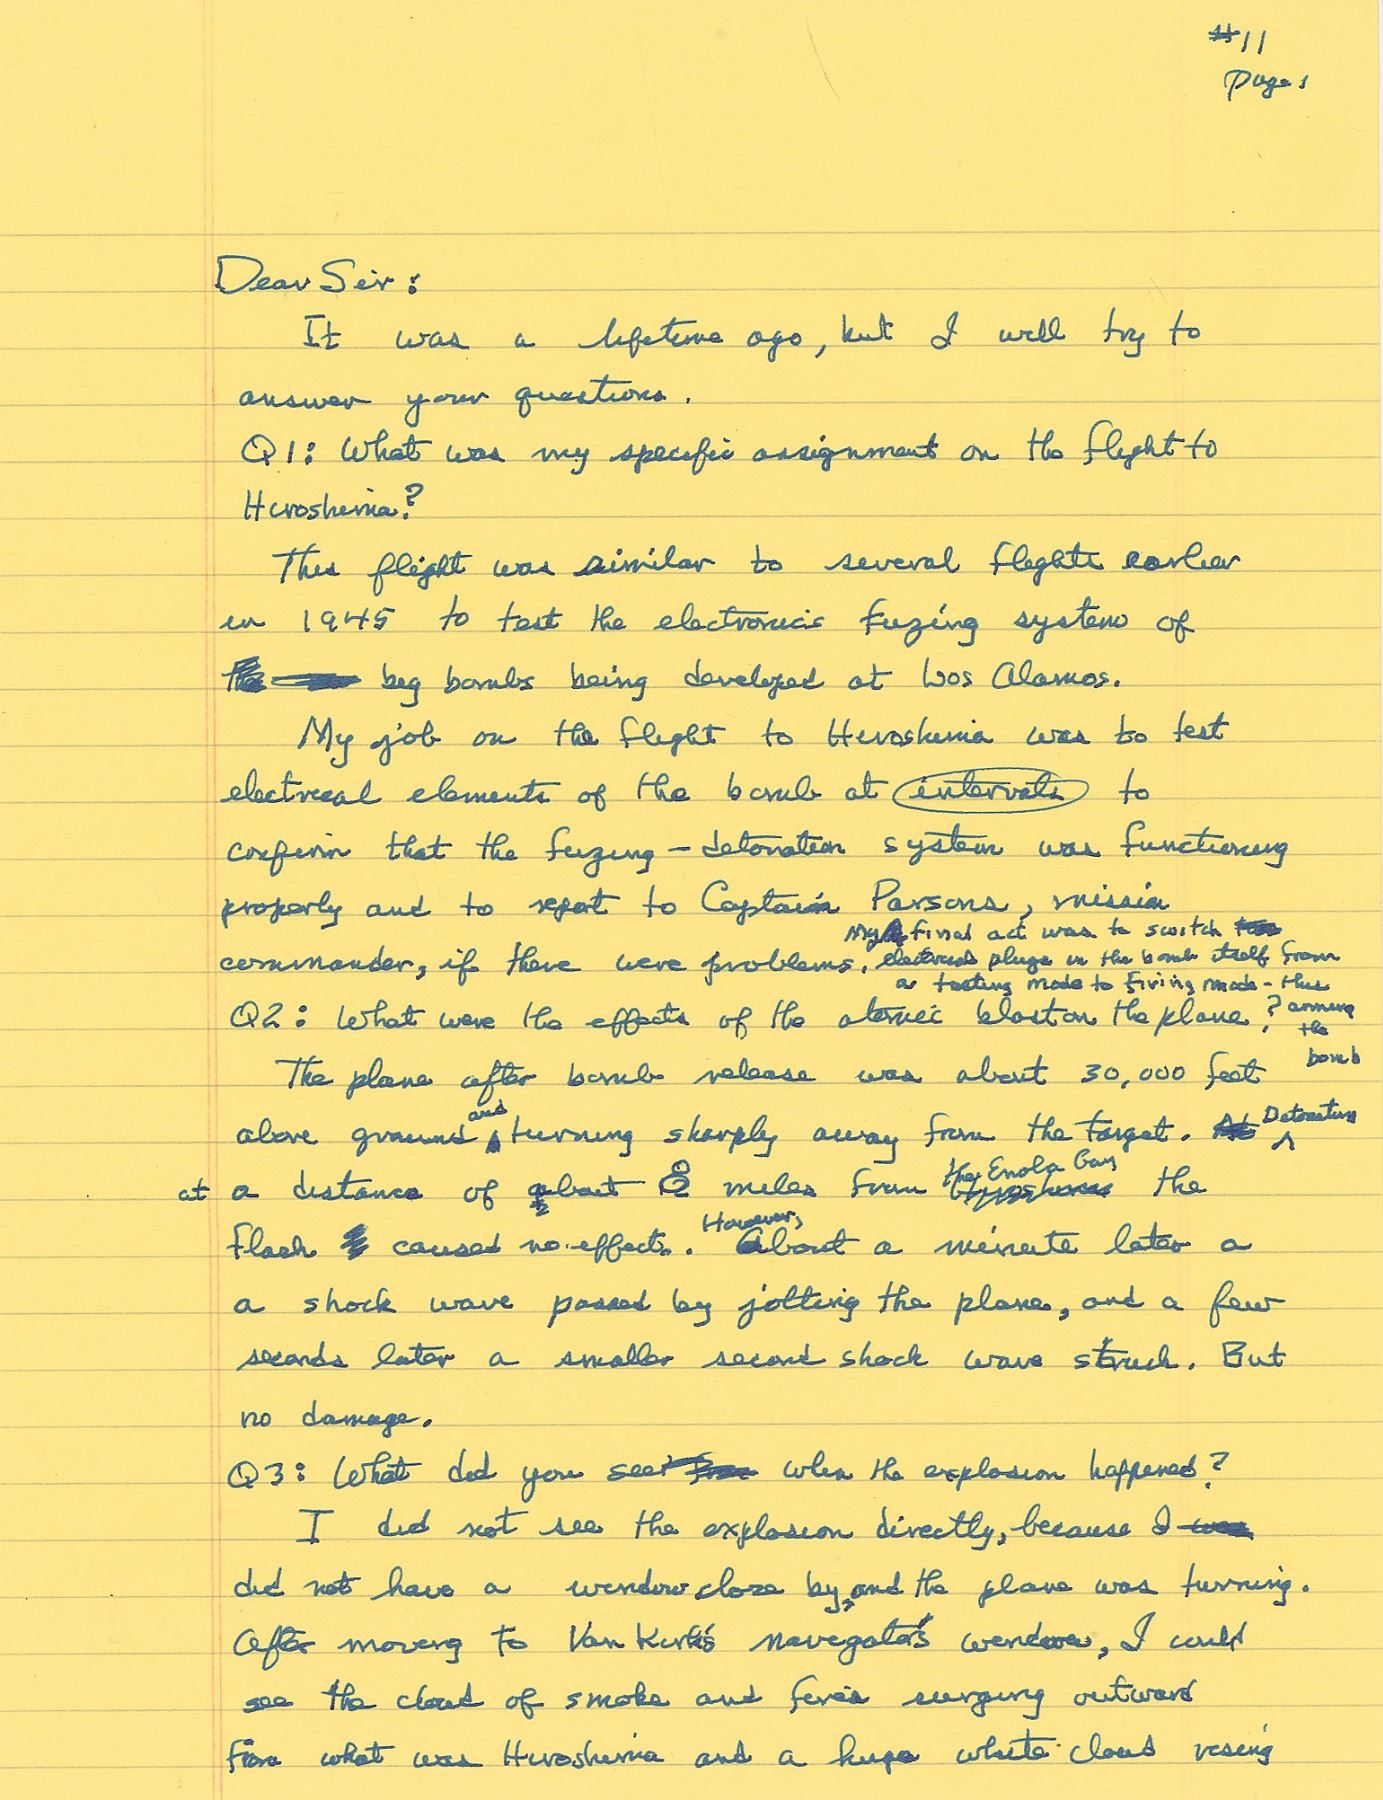 #11
Page 1
Dear Sir:
It was a lifetime ago, but I will try to
answer your questions.
Q1: What was my specific assignment on the flight to
Hiroshima?
This flight was similar to several flights earlier
in 1945 to test the electronic fuzing system of
big bombs being developed at Los Alamos.
My job on the flight to Hiroshima was to test
electrical elements of the bomb at intervals to
confirm that the fuzing-detonation system was functioning
properly and to report to Captain Parsons, mission
commander, if there were problems. My final act was to switch
electrical plugs in the bomb itself from
a testing mode to firing mode - thus
arming
the
bomb
Q2: What were the effects of the atomic blast on the plane?
The plane after bomb release was about 30,000 feet
above ground and turning sharply away from the target. Detonation
at a distance of about 12 miles from the Enola Gay the
flash caused no effect. However, about a minute later a
a shock wave passed by jolting the plane, and a few
seconds later a smaller second shock wave struck. But
no damage.
Q3: What did you see when the explosion happened?
I did not see the explosion directly, because I
did not have a window close by, and the plane was turning.
After moving to Van Kirk's navigator's window, I could
see the cloud of smoke and fires surging outward
from what was Hiroshima and a huge white cloud rising